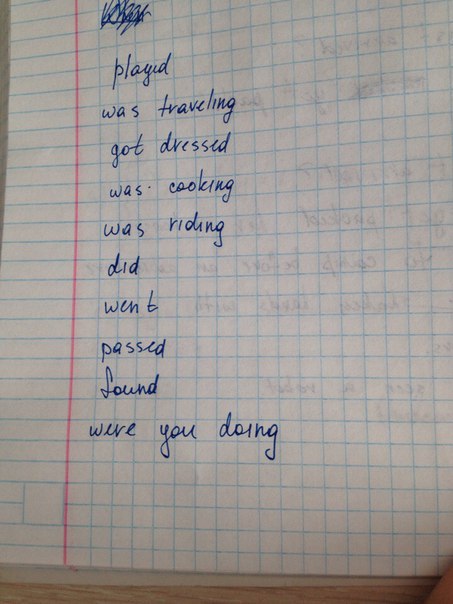 played
was traveling
got dressed
was cooking
was riding
did
went
passed
found
were you doing